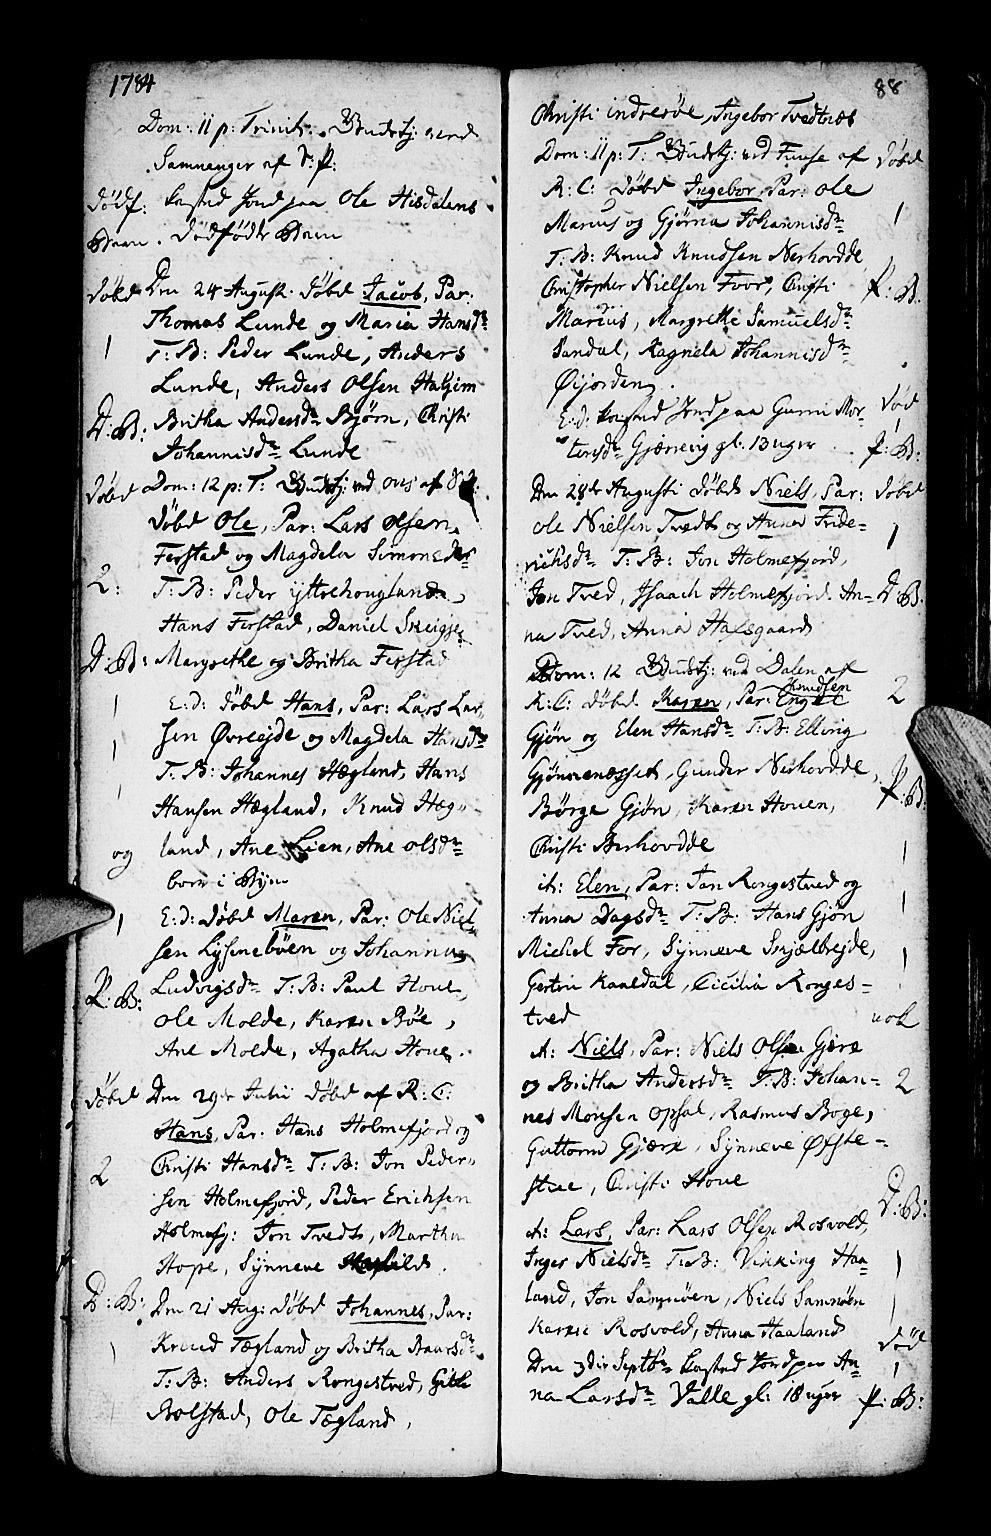 1784
Dom: 11 p: Trinit: Gudstj: ved
Samnanger af S: P:
dödf: kasted Jord paa Ole Hisdalens
Baarn. Dödfödte Barn
döbd Den 24 August. döbd Jacob, Par:
Thomas Lunde og Maria Hansdr
1 T: B: Peder Lunde, Anders
Lunde, Anders Olsen Hatjem
D: B: Britha Andersdr Bjørn, Christi
Johannisdr Lunde
döbd Dom: 12 p: T: Gudstj: ved Ous af
döbd Ole, Par: Lars Olsen
Ferstad og Magdela Simonsdr
2: T: B: Peder yttrehouglund,
Hans Ferstad, Daniel
D: B: Margrethe og Britha Ferstad
1 E: d: döbd Hans, Par: Lars Lar-
1 sen Øvreejde og Magdela Hansdr
T: B: Johannes Hægland, Hans
Hansen Hægland, Knud Hæg-
og land, Ane Lien, Ane olsdr
born i Byn
1 E: d: döbd Maren, Par: Ole Niel-
sen Lysnebøen og Johanna
P: B: Ludvigsdr T: B: Paul Houe,
Ole Molde, Karen Bøe,
Ane Molde, Agatha Houe.
döbd Den 29de Julii döbd af R: C:
Hans, Par: Hans Holmefjord og
2 Christi Hansdr T: B: Jon Peder-
sen Holmefjord, Peder Erichsen
Holmefj: Jon Tvedt, Martha
Hope, Synneve
D: B: Den 21 Aug: döbd Johannes, Par:
1 Knud Tægland og Britha
T: B: Anders Rongestved, Gitle
Bolstad, Ole Tægland,
88
Christi indresøe, Ingebor Tvedtnæs
Dom: 11 p: T: Gudstj: ved Fuuse af döbd
R: C: döbd Ingebor, Par: Ole
Marius og Gjørna Johannisdr 1
T: B: Knud Knudsen Nerhovdde
Christopher Nielsen Foor, Christi P: B:
Marius, Margrethe Samuelsdr
Sandal, Ragnela Johannisdr
Øijorden.
E: d: kasted Jord paa Gurri Mor- død
tensdr Gjærevig gl: 13 uger P: B:
Den 28de Augusti döbd Niels, Par: döbd
ole Nielsen Tvedt og Anna Fride- 1
richsdr T: B: Jon Holmefjord,
Jon Tved, Isaach Holmefjord. An- D: B:
na Tved, Anna Hafsgaard
Dom: 12 Gudstj: ved Dalen af
Knudsen
R: C: döbd Karen, Par: Engel 2
Gjøn og Elen Hansdr T: B: Elling
Gjønnenesset, Gunder Nerhovdde, P: B:
Børge Gjøn, Karen Houen,
Christi Berhovdde 1
it: Elen, Par: Jan Rongestved og
Anna Dagsdr T: B: Hans Gjøn 1
Michel For, Synneve Smjælbrejde, 1
Gertru Kaaldal, Cicilia Ronges-
tved nok
it: Niels, Par: Niels Olsen Gjere
og Britha Andersdr T: B: Johan- 2
nes Monsen Opsal, Rasmus Boge,
Guttorm Gjære, Synneve Øfste-
stue, Christi Houe D: B:
it: Lars, Par: Lars Olsen Rosvold,
Inger Nielsdr T: B: Vikking Haa- 1
land, Jon Samnøen, Niels Samnøen 1
Karen Rosvold, Anna Haaland död
Den 3die Septbr kasted Jord paa An- 1
na Larsdr Valle gl: 18 uger P: B: